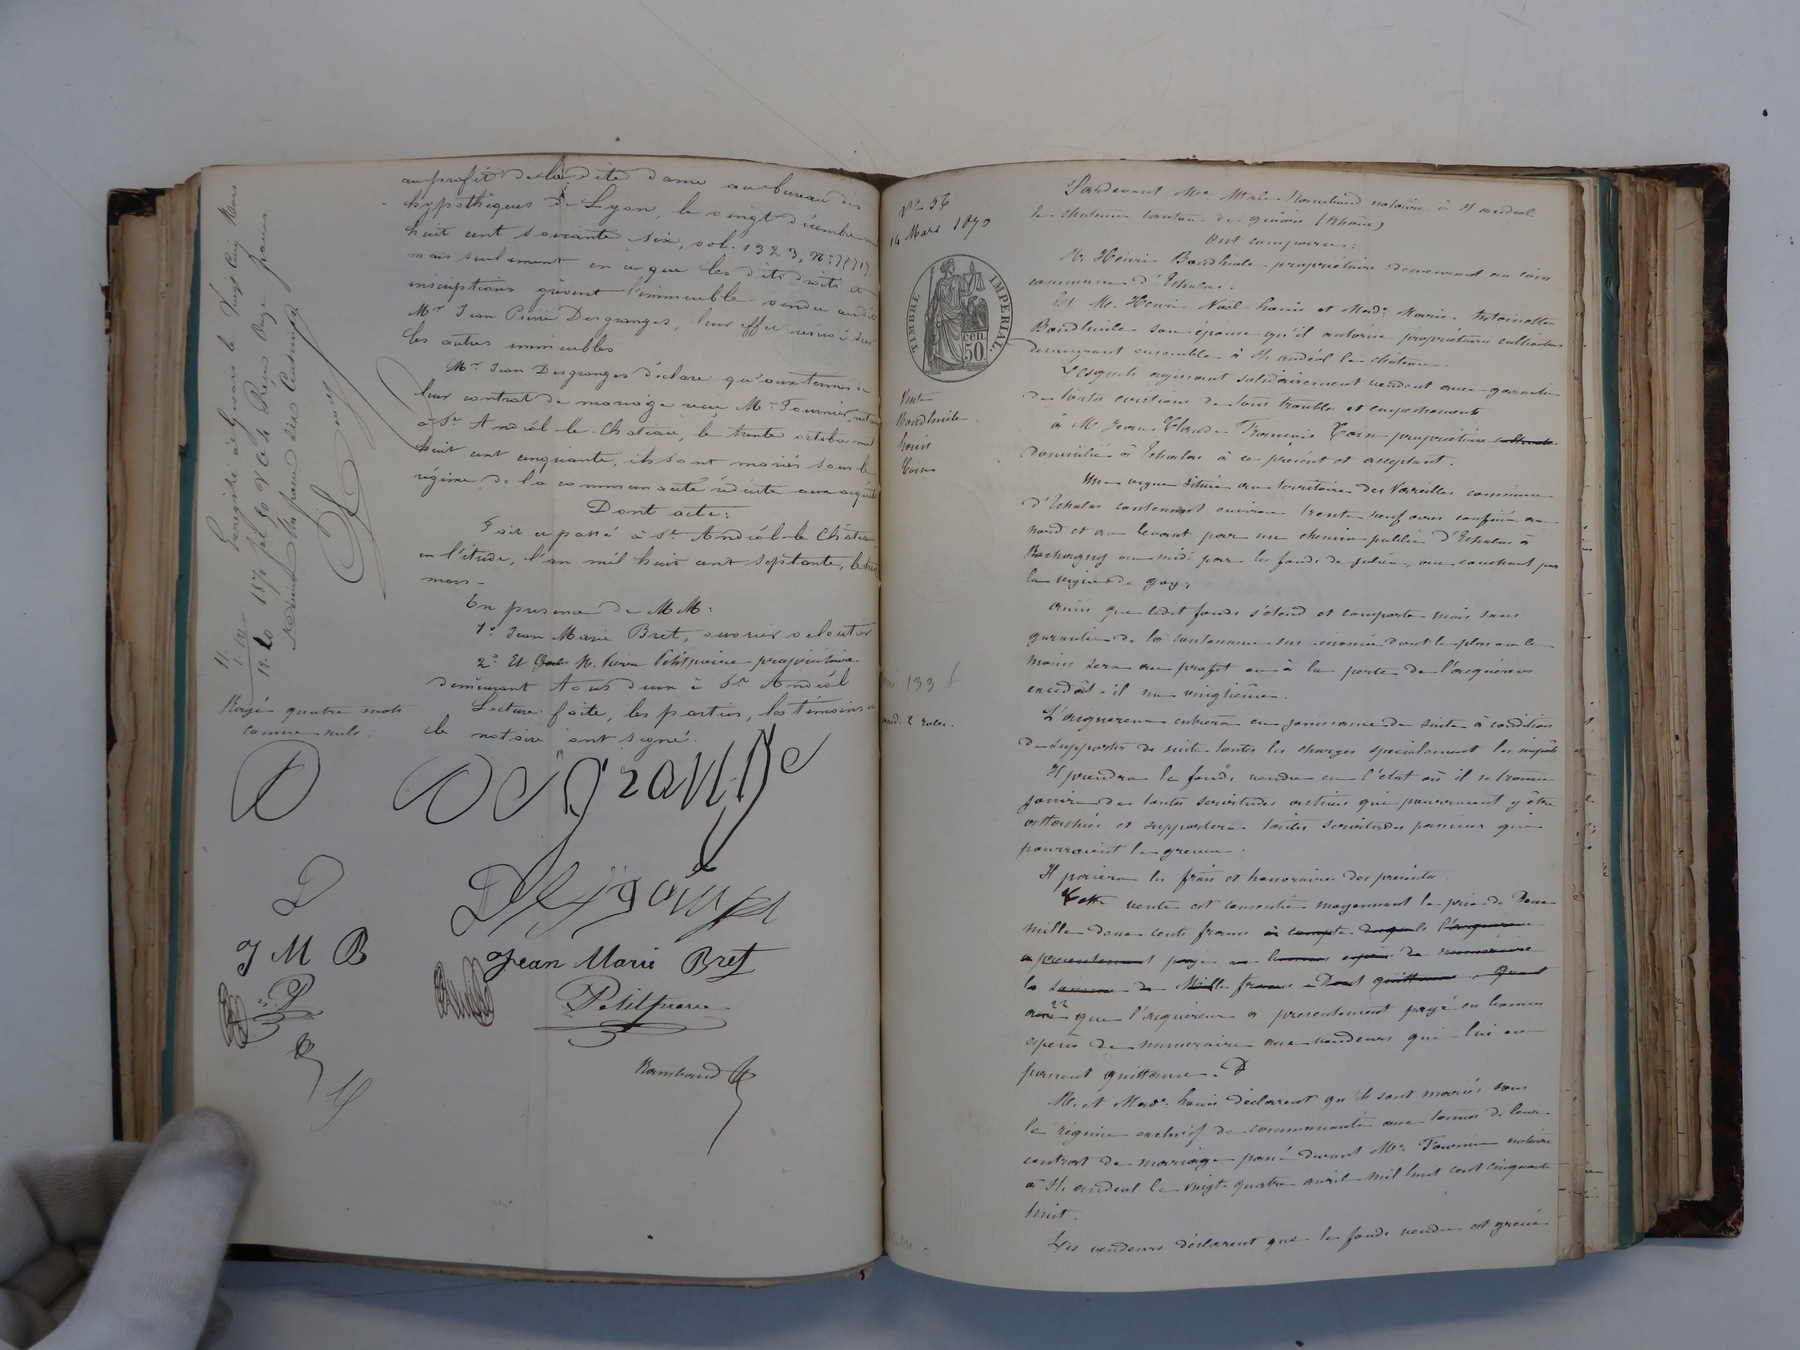 au profit de la dite dame au bureau des
hypothèques de Lyon, le vingt décembre mil
huit cent soixante six, vol. 1323, N°
mais seulement en ce que les dits droits et
inscriptions grèvent l'immeuble vendu audit
Mr Jean Pierre Desgranges, leur effet réservé sur
les autres immeubles
Mr Jean Desgranges déclare qu'aux termes de
leur contrat de mariage reçu Me Fournier, notaire
à St Andéol-le-Château, le trente octobre mil
huit cent cinquante, ils sont mariés sous le
régime de la communauté réduite aux acquêts
Dont acte:
Fait et passé à St Andéol-le-Château
en l'étude, l'an mil huit cent septante, le
mars -
En présence de MM:
1° Jean Marie Bret, ouvrier veloutier
2° Et M. Pierre Petitpierre propriétaire
demeurant tous deux à St Andéol
Lecture faite, les parties, les témoins et
le notaire ont signé.
Enregistré à Givors le Vingt Cinq Mars
1870 fol 50 V
11.
1.10
12.10
Rayé quatre mots
comme nuls.
D
D
J M B
P
Desgrange
Jean Marie Bret
Petitpierre
Rambaud
N° 56
14 Mars 1870
TIMBRE IMPERIAL.
50 cen.
Vente
Bourdhuile
Louis
133 f
2 roles.
Pardevant Me Rambaud notaire à St andéol
le chateau canton de givors (Rhône)
Ont comparu:
M. Henri propriétaire demeurant au
commune d'Echalas.
Et M. Henri Noël Louis et Made Marie Antoinette
son épouse qu'il autorise propriétaires cultivateurs
demeurant ensemble à St andéol le château.
Lesquels agissant solidairement vendent avec garantie
de toutes évictions de tous troubles et empêchements
à M. Jean Claude François propriétaire
domicilié à Echalas à ce présent et acceptant.
Une vigne située au territoire des commune
d'Echalas contenant environ trente neuf ares confinée au
nord et au levant par un chemin public d'Echalas à
au midi par le fonds de , au couchant par
la vigne de
ainsi que ledit fonds s'étend et comporte mais sans
garantie de la contenance sus énoncée dont le plus ou le
moins sera au profit ou à la perte de l'acquéreur
excédât-il un vingtième.
L'acquéreur entrera en jouissance de suite à condition
de supporter de suite toutes les charges spécialement les impôts
Il prendra le fonds vendu en l'état où il se trouve
jouira des toutes servitudes actives qui pourraient y être
attachées et supportera toutes servitudes passives qui
pourraient le grever.
Il paiera les frais et honoraires des présentes
Cette vente est consentie moyennant le prix de Deux
mille deux cents francs à compte duquel l'acquéreur
a présentement payé en bonnes espèces de numéraire
la somme de Mille francs Dont quittance,
que l'acquéreur a présentement payé en bonnes
espèces de numéraire aux vendeurs qui lui en
passent quittance. D
M. et Made Louis déclarent qu'ils sont mariés sous
le régime exclusif de communauté aux termes de leur
contrat de mariage passé devant Me Fournier notaire
à St andéol le vingt quatre avril mil huit cent cinquante
huit.
Les vendeurs déclarent que le fonds vendu est grevé